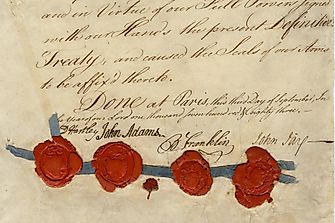 and in Virtue of our Full Powers, signed
with our Hands the present Definitive
Treaty, and caused the Seals of our Arms
to be affix'd thereto.
Done at Paris, this third day of September, In
the Year of our Lord one thousand seven hundred & Eighty three.
D Hartley John Adams. B Franklin John Jay